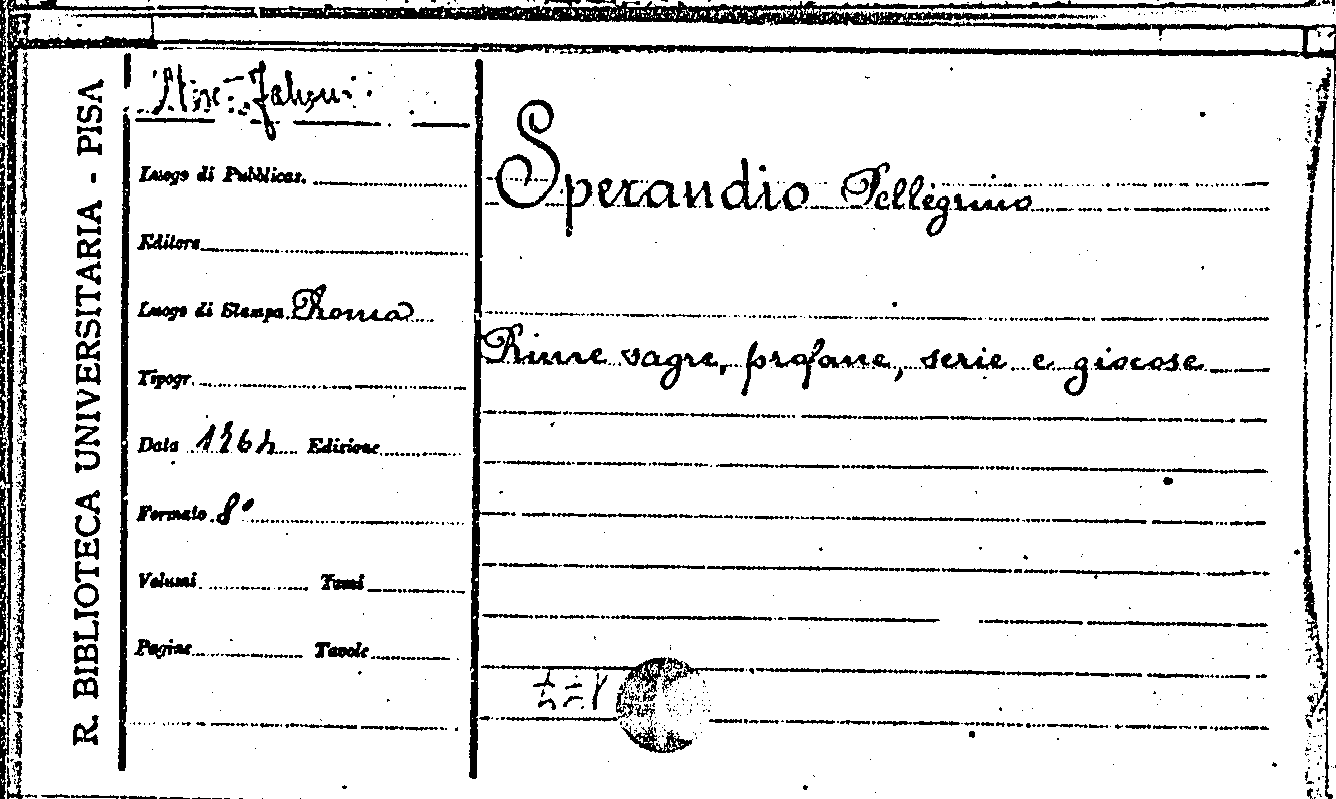 R. BIBLIOTECA UNIVERSITARIA - PISA
Luogo di Pubblicaz.
Editore
Luogo di Stampa Roma
Tipogr.
Data Edizione
Formato 8°
Volumi Tomi
Pagine Tavole
Sperandio Pellegrino
Rime sagre, profane, serie e giocose